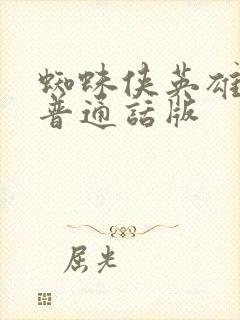 蜘蛛侠英雄
普通話版
屈光